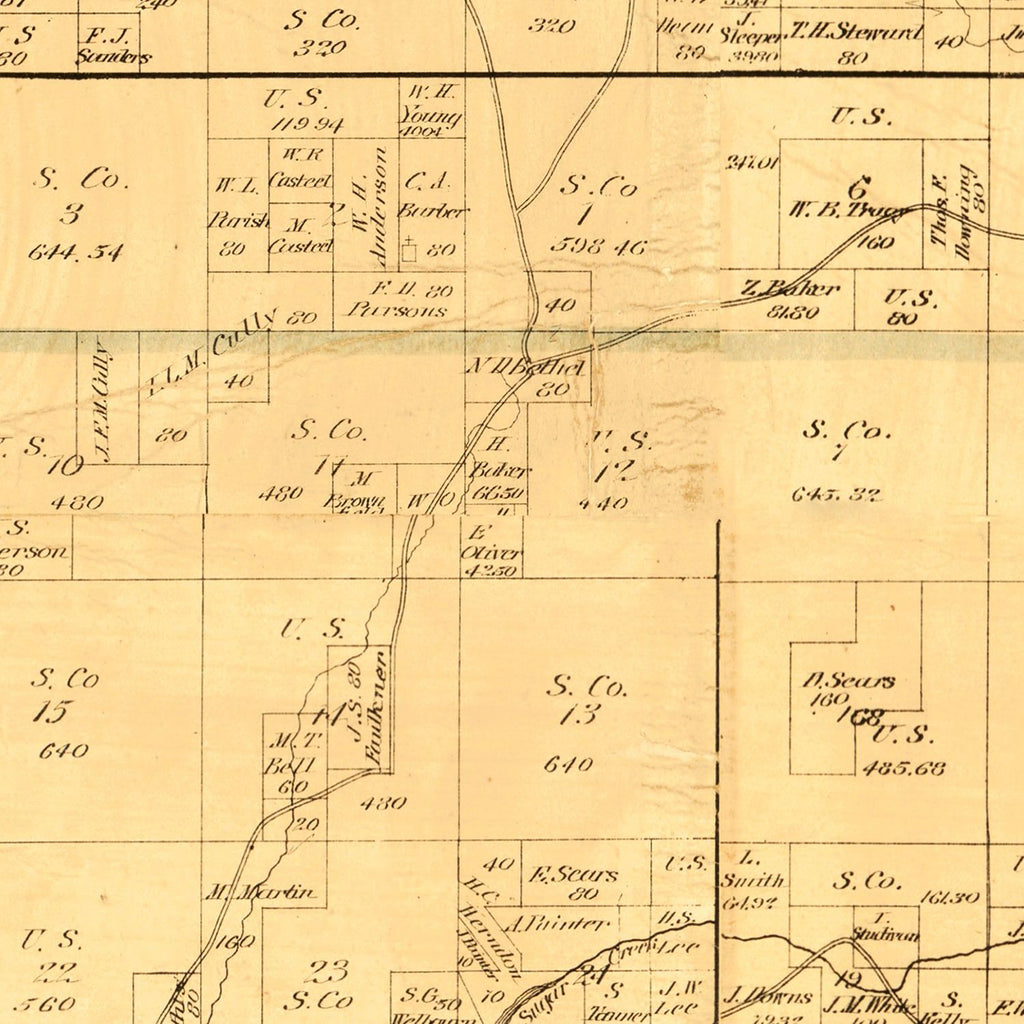 240
F. J.
Sanders
S Co.
320
320
80
J.
Sleeper
39.80
T. H. Steward
80
40
U. S.
119 94
W. H.
Young
4004
S. Co.
3
644.54
W. L.
Parish
80
W. R
Casteel
M.
Casteel
2
W. H.
Anderson
C. A.
Barber
80
F. D. 80
Parsons
80
S. Co
1
598 46
40
U. S.
247.01
6
W. B. Tracy
160
Thos. F.
Downing
80
Z. Baker
81.80
U. S.
80
J. F. M. Cully
I. L. M. Cully
40
80
N D Bethel
80
U. S.
10
480
S. Co.
11
480
M
Brown
W
O
H.
Baker
66 50
U. S.
12
440
S. Co.
7
645.32
S.
erson
80
E
Oliver
42 50
U. S.
S. Co
15
640
14
J. S. 80
Faulkner
M. T.
Bell
60
20
480
S. Co.
13
640
D. Sears
160
168
U. S.
485.68
M. Martin
160
U. S.
22
560
80
23
S. Co
40
E. Sears
80
U. S.
H. C.
Herndon
10
A. Painter
H. S.
Lee
Sugar Creek
24
S. G. 50
Welbourn
70
S
Tanner
J. W
Lee
L.
Smith
64.92
S. Co.
161.30
T.
Studivan
19
J. Downs
79 32
J. M. White
S.
Kelly